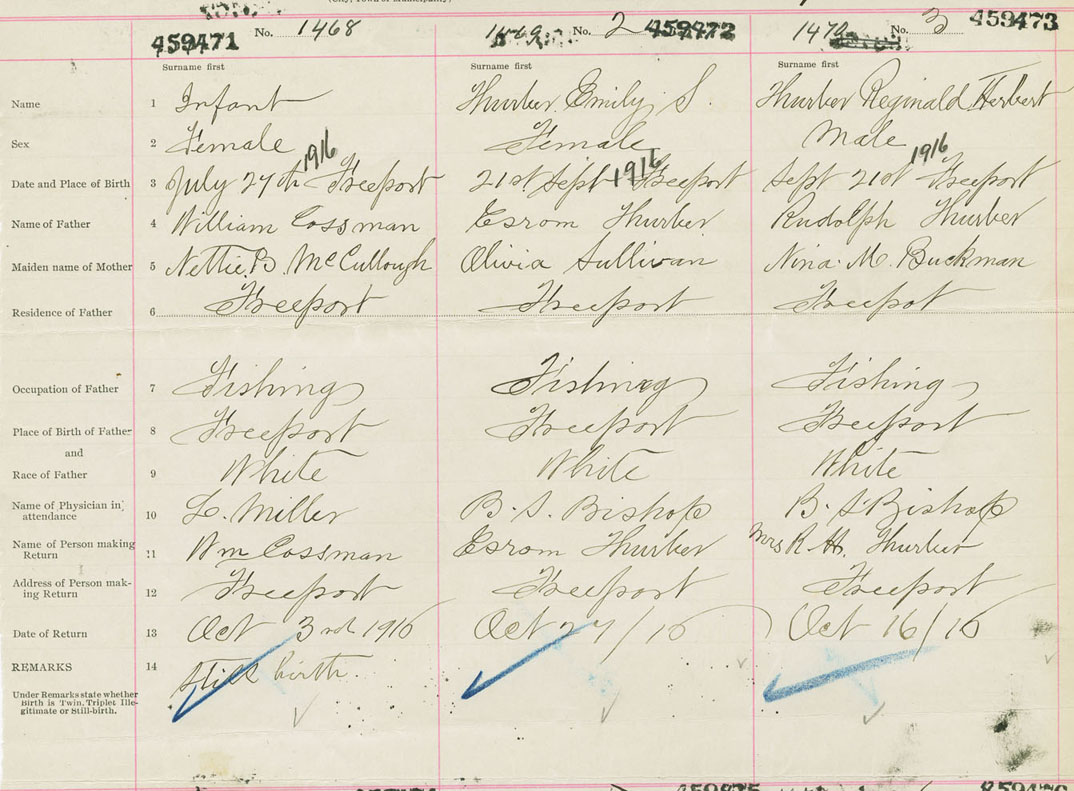 459471 No. 1468 No. 2 459472 1470 No. 3 459473
Surname first Surname first Surname first
Name 1 Infant Thurber Emily S. Thurber Reginald Herbert
Sex 2 Female Female Male
1916 1916 1916
Date and Place of Birth 3 July 27th Freeport 21st Sept Freeport Sept 21st Freeport
Name of Father 4 William Cossman Esrom Thurber Rudolph Thurber
Maiden name of Mother 5 Nettie B. McCullough Olivia Sullivan Nina M. Buckman
Residence of Father 6 Freeport Freeport Freepot
Occupation of Father 7 Fishing Fishing Fishing
Place of Birth of Father 8 Freeport Freeport Freeport
and
Race of Father 9 White White White
Name of Physician in
attendance 10 L. Miller B. S. Bishop B. S. Bishop
Name of Person making
Return 11 Wm Cossman Esrom Thurber Mrs R. H. Thurber
Address of Person mak-
ing Return 12 Freeport Freeport Freeport
Date of Return 13 Oct 3rd 1916 Oct 27/16 Oct 16/16
REMARKS 14 Still birth.
Under Remarks state whether
Birth is Twin, Triplet Ille-
gitimate or Still-birth.